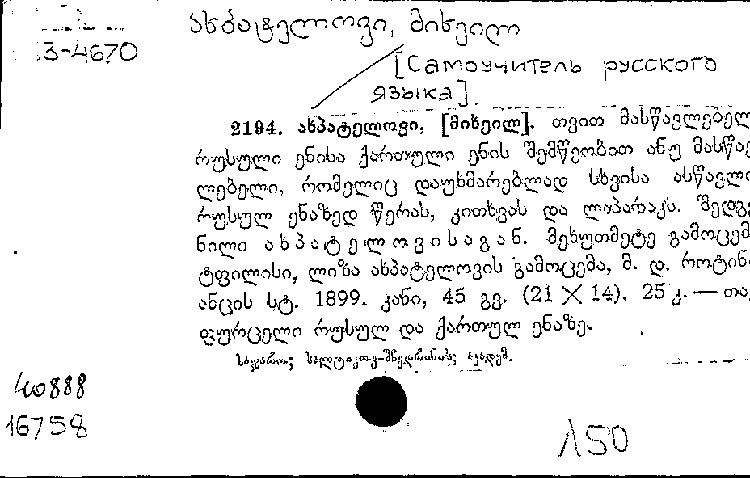 ახპატელოვი, მიხეილ
3-4670
[Самоучитель русского
языка].
2194. ახპატელოვი, [მიხეილ]. თვით მასწავლებელ
რუსული ენისა ქართული ენის შემწეობით ანუ მასწავ
ლებელი, რომელიც დაუხმარებლად სხვისა ასწავლი
რუსულ ენაზედ წერას, კითხვას და ლაპარაკს. შედგე
ნილი ახპატელოვისაგან. მეხუთმეტე გამოცემ
ტფილისი, ლიზა ახპატელოვის გამოცემა, მ. დ. როტინ
ანცის სტ. 1899. კანი, 45 გვ. (21 × 14). 25 კ. — თა
ფურცელი რუსულ და ქართულ ენაზე.
40888
16758
150